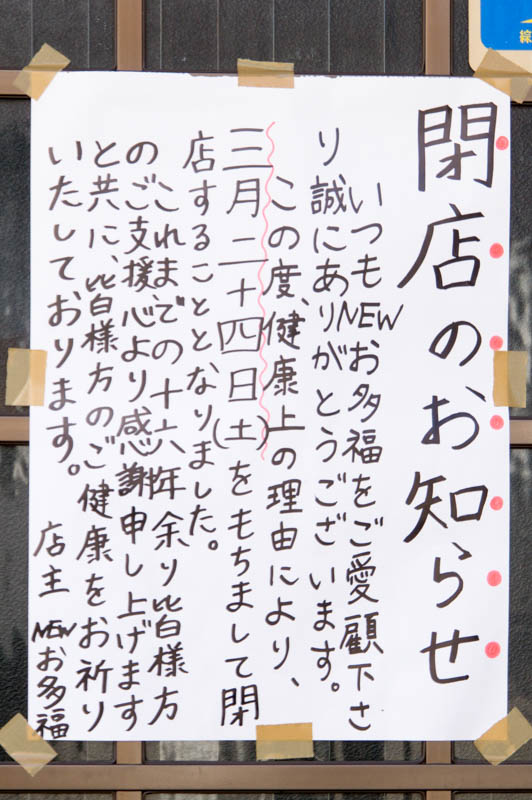 閉店のお知らせ
いつもNEWお多福をご愛顧下さ
り誠にありがとうございます。
この度、健康上の理由により、
三月二十四日(土)をもちまして閉
店することとなりました。
これまでの十六年余り皆様方
のご支援心より感謝申し上げます
と共に、皆様方のご健康をお祈り
いたしております。
店主 NEWお多福